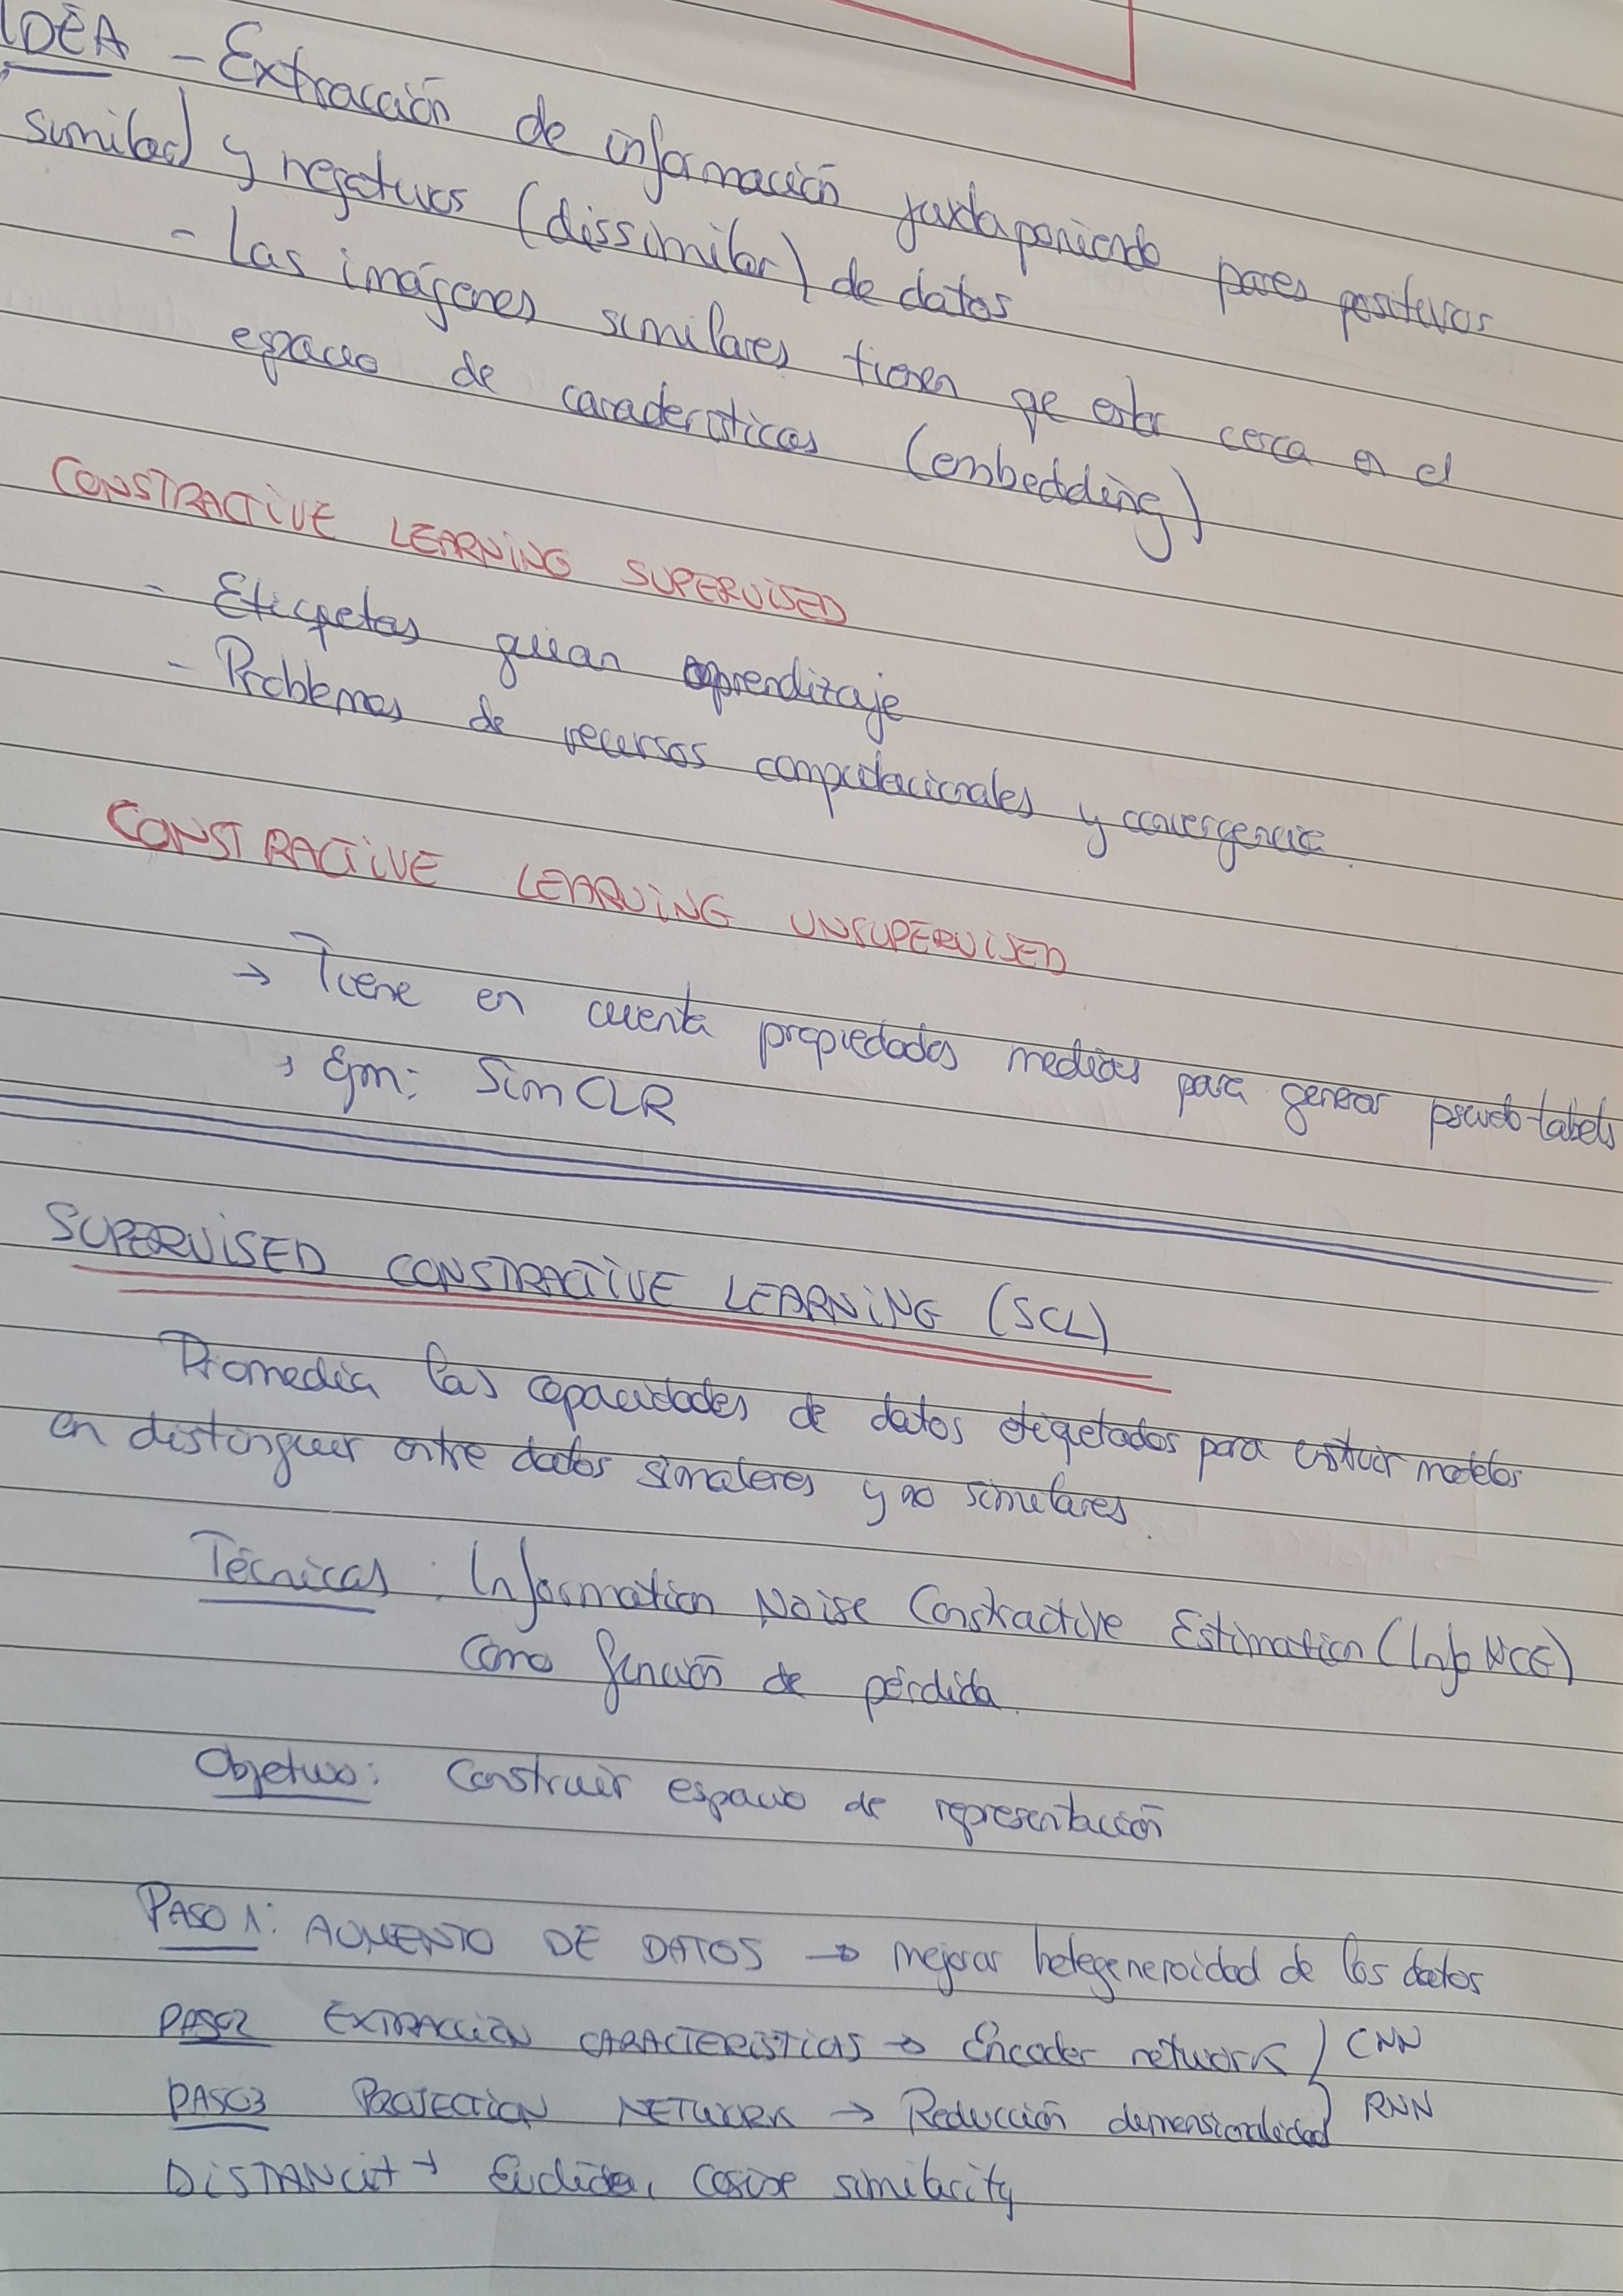 IDEA - Extracción de información juxtaponiendo pares positivos
similar) y negativos (dissimilar) de datos
- Las imágenes similares tienen qe estar cerca en el
espacio de características (embedding)
CONSTRACTIVE LEARNING SUPERVISED
- Etiquetas guian aprendizaje
- Problemas de recursos computacionales y convergencia.
CONSTRACTIVE LEARNING UNSUPERVISED
→ Tiene en cuenta propiedades medias para generar pseudo-labels
→ Ejm: SimCLR
SUPERVISED CONSTRACTIVE LEARNING (SCL)
Promedia las capacidades de datos etiquetados para modelos
en distinguir entre datos similares y no similares.
Técnicas: Information Noise Constractive Estimation (InfoNCE)
como función de pérdida.
Objetivo: Construir espacio de representación
PASO 1: AUMENTO DE DATOS → mejorar heterogeneidad de los datos
PASO2 EXTRACCIÓN CARACTERISTICAS → Encoder network } CNN
PASO3 PROJECTION NETWORK → Reducción dimensionalidad } RNN
DISTANCIA → Euclidea, Cosine similarity